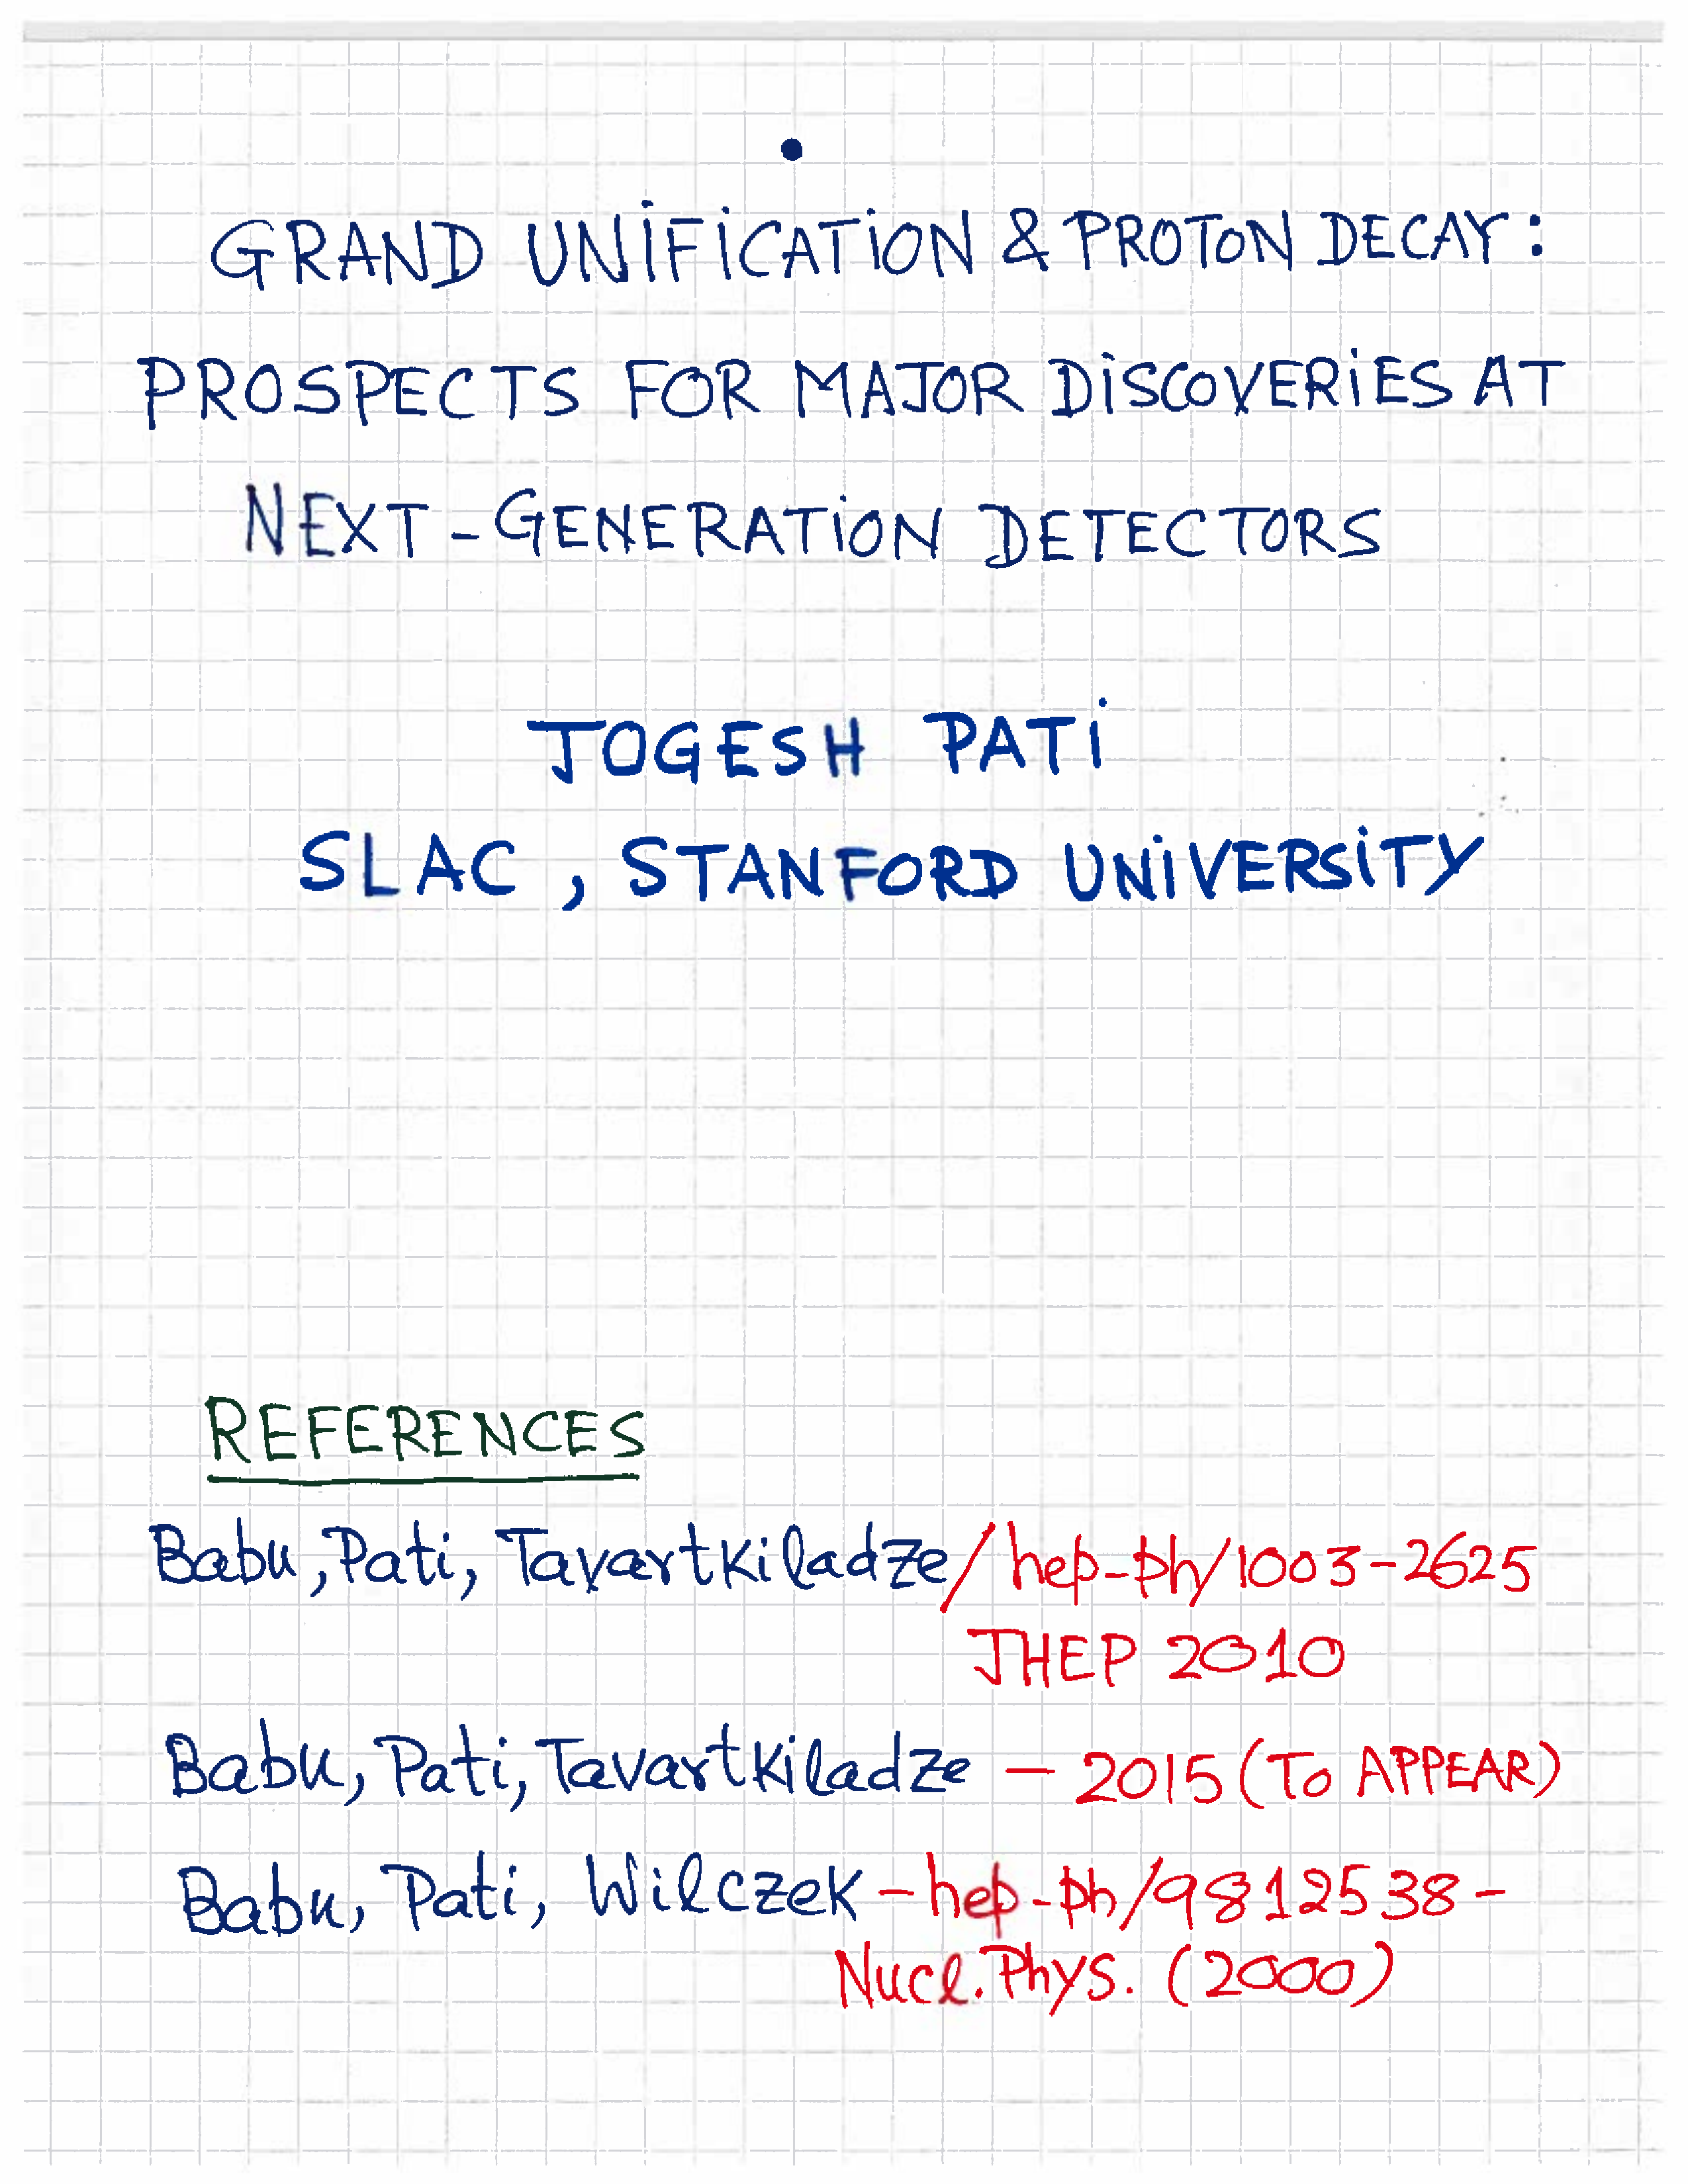 GRAND UNIFICATION & PROTON DECAY:
PROSPECTS FOR MAJOR DISCOVERIES AT
NEXT-GENERATION DETECTORS
JOGESH PATI
SLAC, STANFORD UNIVERSITY
REFERENCES
Babu, Pati, Tavartkiladze/hep-ph/1003-2625
JHEP 2010
Babu, Pati, Tavartkiladze - 2015 (TO APPEAR)
Babu, Pati, Wilczek - hep-ph/9812538 -
Nucl. Phys. (2000)